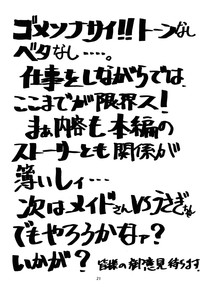 ゴメンナサイ!!トーンなし
ベタなし‥‥。
仕事をしながらでは、
ここまでが限界ス!
まぁ内容も本編の
ストーリーとも関係が
薄いしィ…
次はメイドさんVSうさぎちゃん
でもやろうかなァ?
いかが? 皆様の御意見待ちます。
21